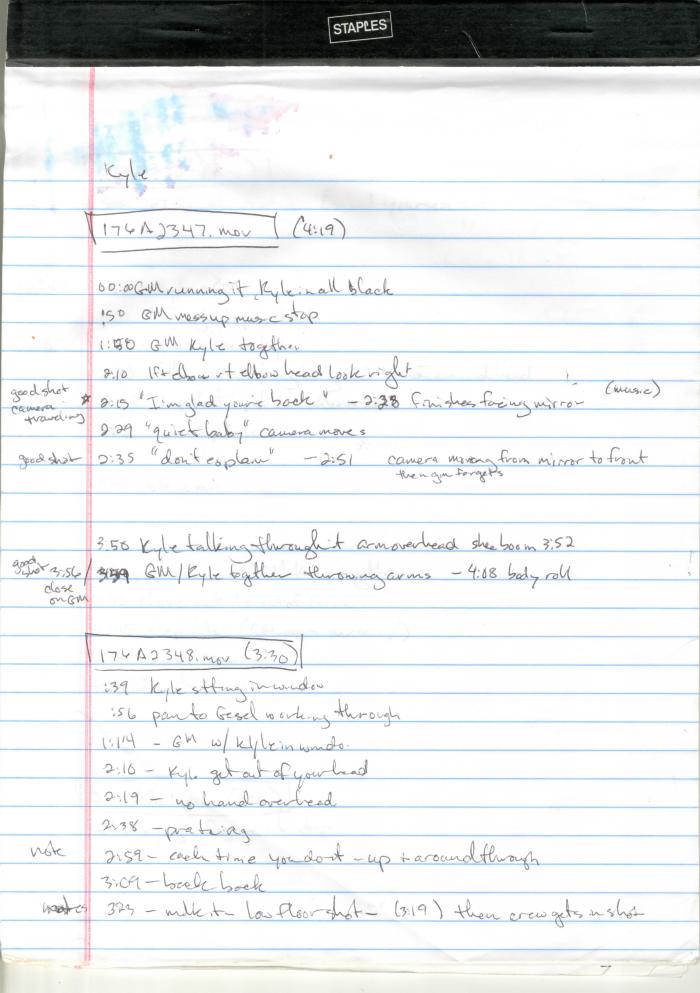 STAPLES
Kyle
176A2347.mov (4:19)
00:00 GM running it, Kyle in all black
:50 GM mess up music stop
1:50 GM Kyle together
2:10 lft elbow rt elbow head look right
good shot camera traveling * 2:15 "I'm glad you're back" - 2:28 finishes facing mirror (music)
2:29 "quiet baby" camera moves
good shot 2:35 "don't explain" - 2:51 camera moving from mirror to front
then gm forgets
3:50 Kyle talking through it arm overhead shee boom 3:52
good shot 3:56 / GM/Kyle together throwing arms - 4:08 body roll
close on GM
176A2348.mov (3:30)
:39 Kyle sitting in window
:56 pan to Gesel working through
1:14 - GM w/ Kyle in windo
2:10 - Kyle get out of your head
2:19 - no hand overhead
2:38 -
note 2:59 - each time you do it - up + around through
3:09 - back back
323 - milk it - low floor shot - (3:19) then crew gets in shot